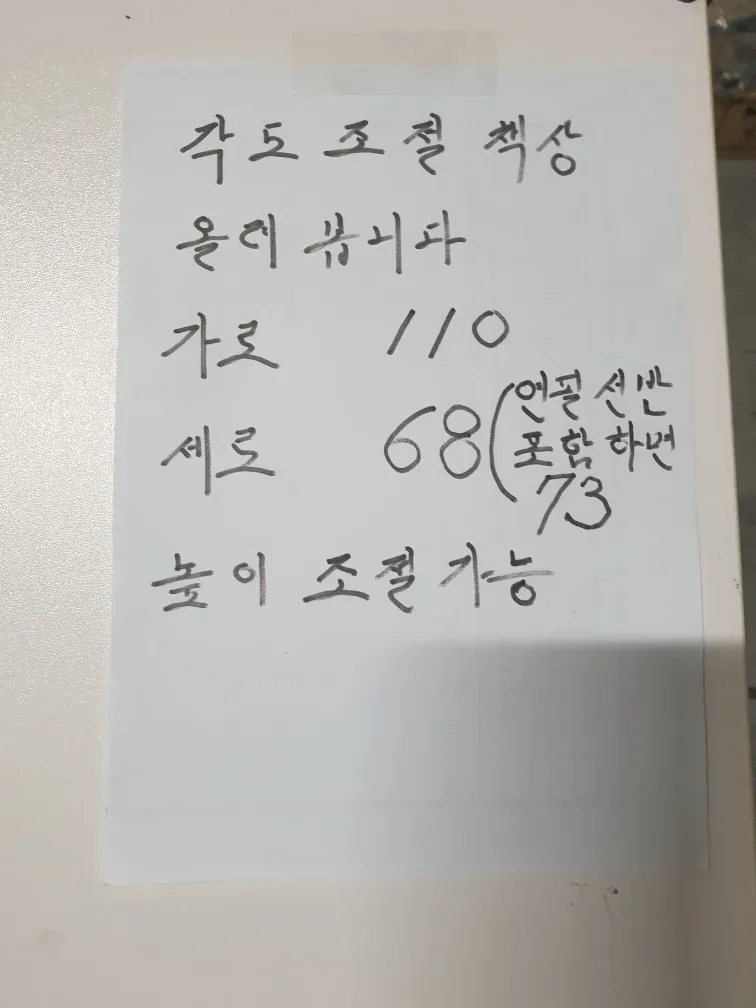 각도 조절 책상
올려 봅니다
가로 110
세로 68(연필 선반
포함하면
73
높이 조절 가능